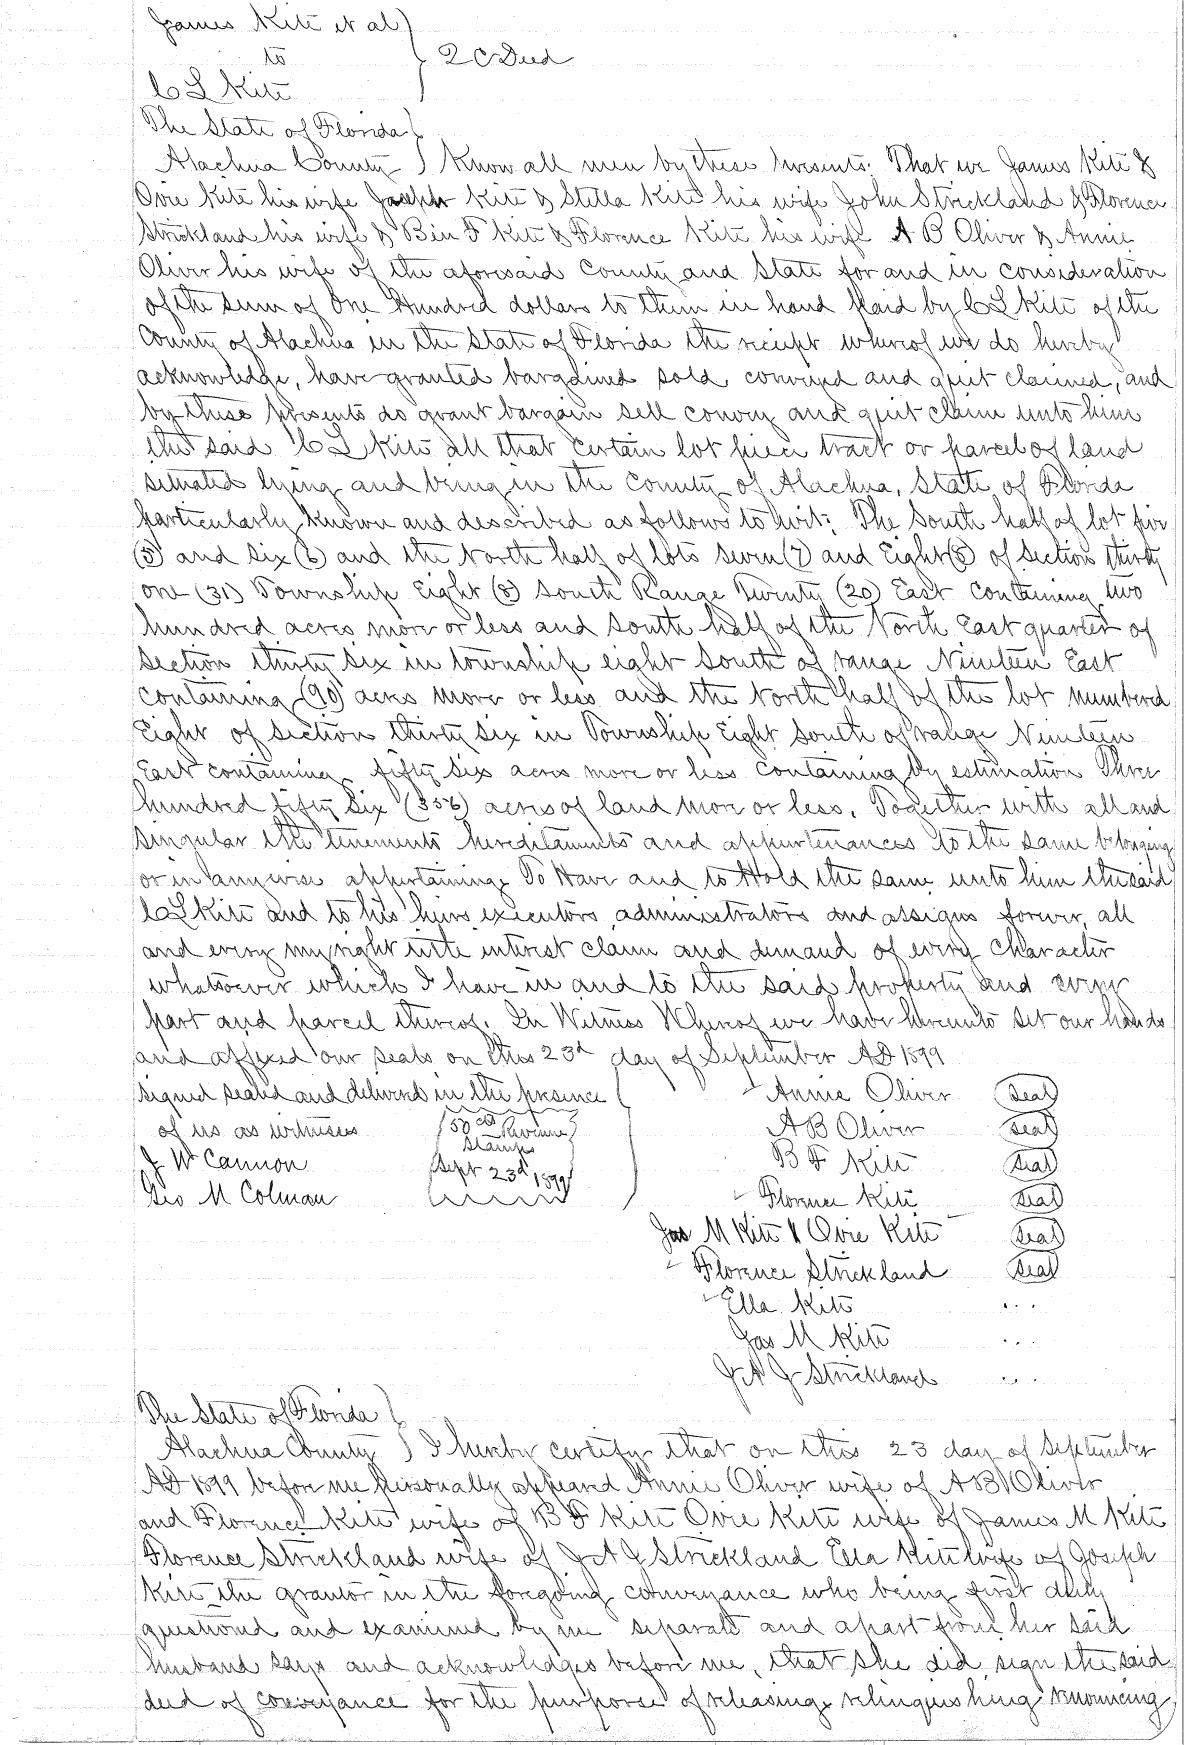 James Kite et al
to
C L Kite
Q C Deed
The State of Florida
Alachua County Know all men by these presents: That we James Kite &
Ovie Kite his wife Joseph Kite & Stella Kite his wife John Strickland & Florence
Strickland his wife & Ben F Kite & Florence Kite his wife A B Oliver & Annie
Oliver his wife of the aforesaid County and State for and in consideration
of the sum of One Hundred dollars to them in hand paid by C L Kite of the
County of Alachua in the State of Florida the receipt whereof we do hereby
acknowledge, have granted bargained sold conveyed and quit claimed, and
by these presents do grant bargain sell convey and quit claim unto him
the said C L Kite all that certain lot piece tract or parcel of land
situated lying and being in the County of Alachua, State of Florida
particularly known and described as follows to wit: The South half of lot five
(5) and six (6) and the North half of lots seven (7) and Eight (8) of section thirty
one (31) Township Eight (8) South Range Twenty (20) East containing two
hundred acres more or less and South half of the North East quarter of
section thirty six in township eight South of range Nineteen East
containing (90) acres more or less and the North half of the lot numbered
Eight of section thirty six in Township Eight South of range Nineteen
East containing fifty six acres more or less containing by estimation Three
hundred fifty six (356) acres of land more or less. Together with all and
singular the tenements hereditaments and appurtenances to the same belonging
or in anywise appertaining To Have and to Hold the same unto him the said
C L Kite and to his heirs executors administrators and assigns forever, all
and every my right title interest claim and demand of every character
whatsoever which I have in and to the said property and every
part and parcel thereof. In Witness Whereof we have hereunto set our hands
and affixed our seals on this 23d day of September AD 1899
signed sealed and delivered in the presence
of us as witnesses
J W Cannon
Geo M Colman
50 cts Revenue
Stamps
Sept 23d 1899
Annie Oliver seal
A B Oliver seal
B F Kite seal
Florence Kite seal
Jas M Kite & Ovie Kite seal
Florence Strickland seal
Ella Kite ...
Jas M Kite ...
J A J Strickland ...
The State of Florida
Alachua County I hereby certify that on this 23 day of September
AD 1899 before me personally appeared Annie Oliver wife of A B Oliver
and Florence Kite wife of B F Kite Ovie Kite wife of James M Kite
Florence Strickland wife of J A J Strickland Ella Kite wife of Joseph
Kite the grantor in the foregoing conveyance who being first duly
questioned and examined by me separate and apart from her said
husband says and acknowledges before me, that she did sign the said
deed of conveyance for the purpose of releasing relinquishing renouncing